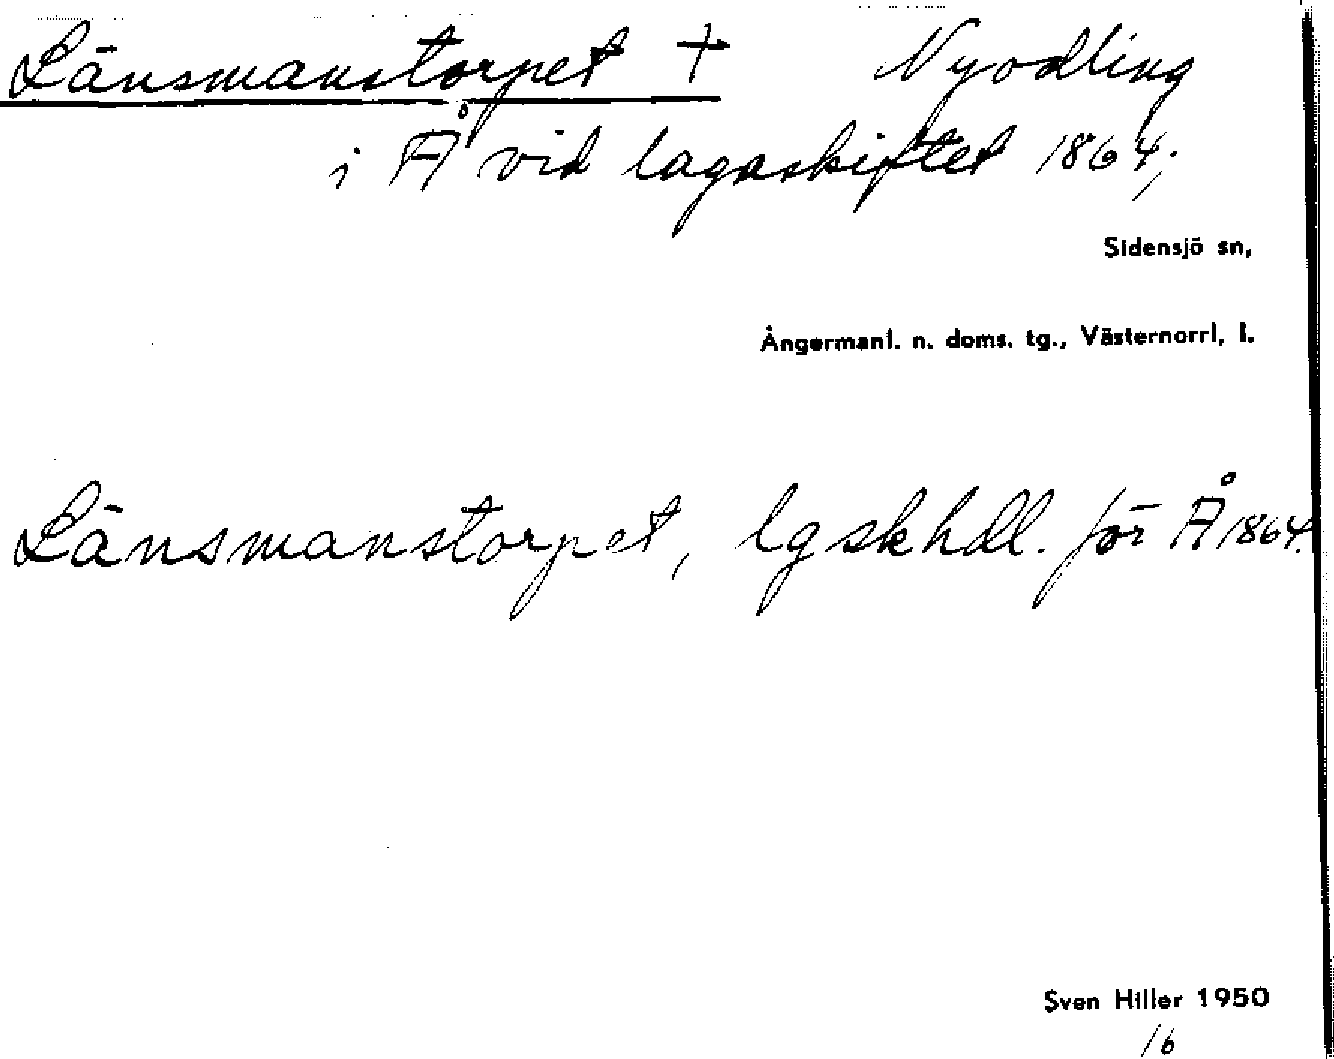 Länsmanstorpet + Nyodling
i Å vid lagaskiftet 1864;
Sidensjö sn,
Ångermanl. n. doms. tg., Västernorrl, l.
Länsmanstorpet, lgskhdl. för Å 1864.
Sven Hiller 1950
16